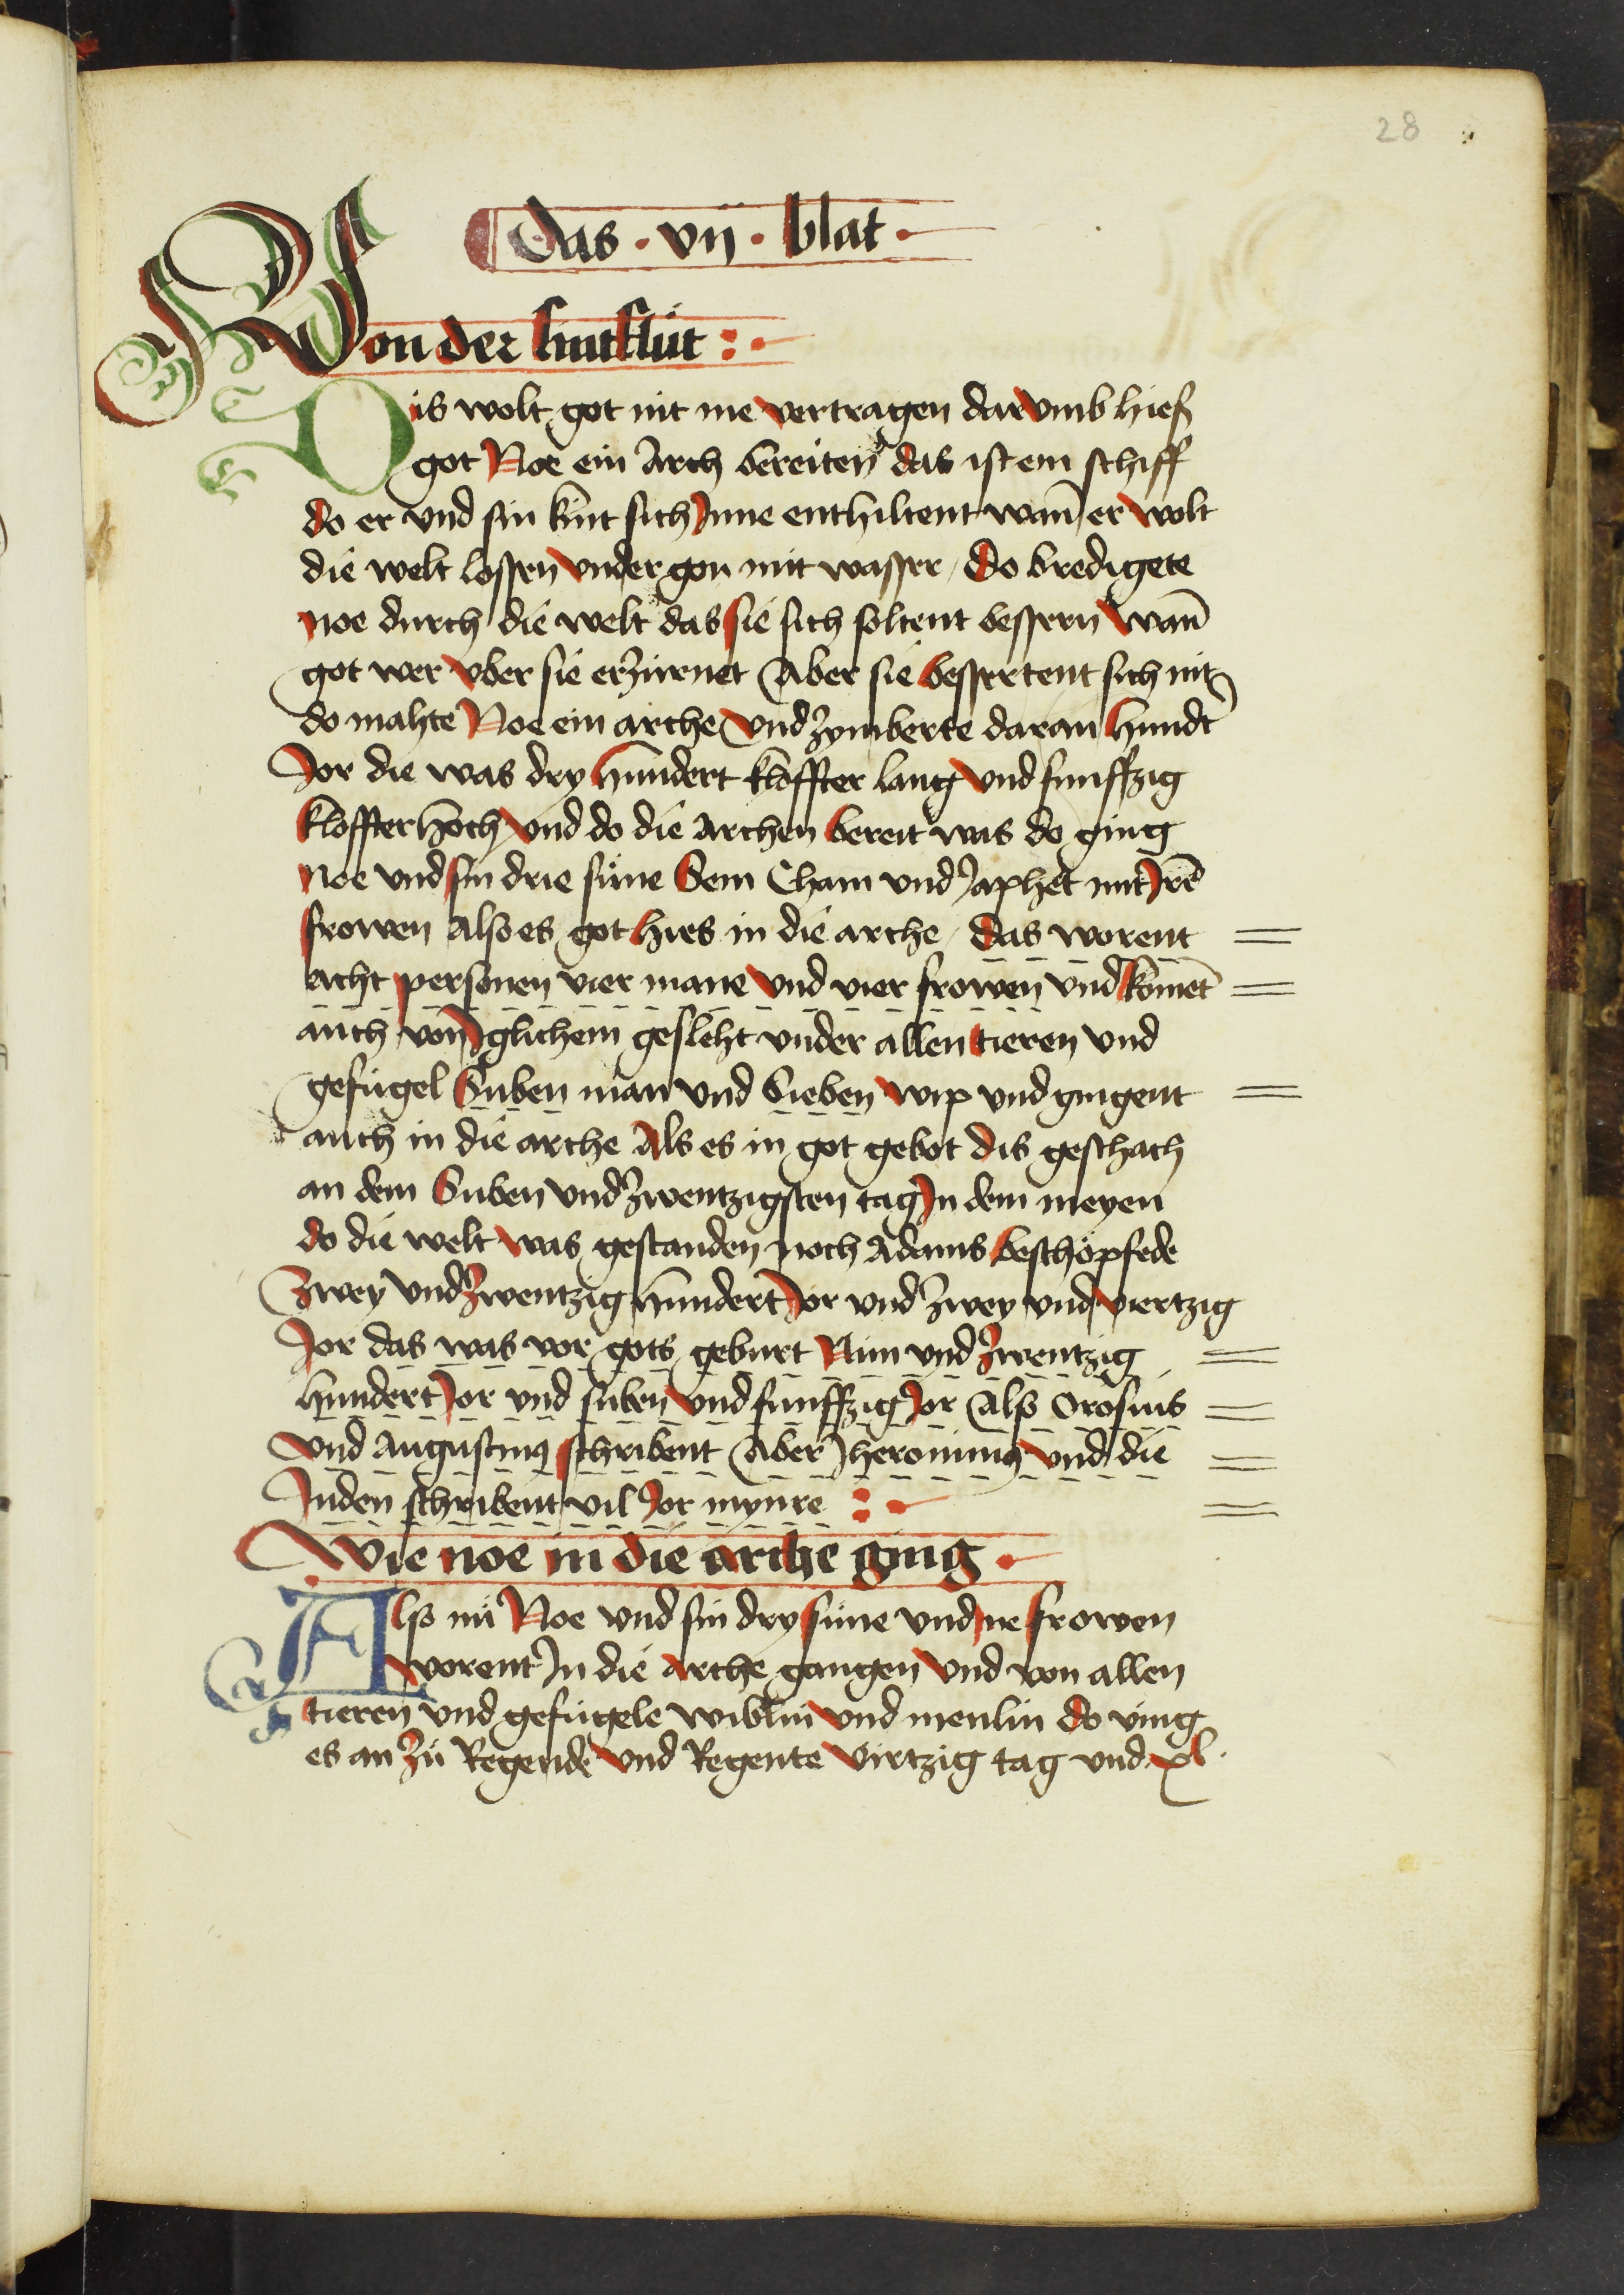 28
das · vij · blat ·
Von der sintflüt :·
Dis wolt got nit me vertragen dar vmb hieß
got Noe ein Arch bereiten das ist ein schiff
do er vnd sin kint sich Inne enthiltent wañ er wolt
die welt lossen vnder gon mit wasser / Do bredigete
noe durch die welt das sie sich soltent bessern wañ
got wer vber sie erzürnet Aber sie bessertent sich nit
do mahte Noe ein arche vnd zymberte daran hundt
Jor die was dry hundert kloffter lang vnd funffzig
kloffter hoch vnd do die Archen bereit was do ging
Noe vnd sin drie süne Sem Cham vnd Japhet mit Irē
frowen Also es got hies in die arche / das worent
acht personen vier mane vnd vier frowen vnd komēt
auch von Iglichem gesleht vnder allen tieren vnd
gefügel Suben man vnd Sieben wip vnd gingent
auch in die arche Als es in got gebot dis geschach
an dem Suben vnd zwentzigsten tag In dem meyen
do die welt was gestanden noch Adams beschöpfede
zwey vnd zwentzig hundert Jor vnd zwey vnd viertzig
Jor das was vor gots geburt Nün vnd zwentzig
hundert Jor vnd suben vnd funffzig Jor Also Orosius
vnd Augustinꝰ schribent Aber Jheronimꝰ vnd die
Juden schribent vil Jor mynre :·
Wie noe in die arche ging ·
Also nü Noe vnd sin dry süne vnd ire frowen
worent In die arche gangen vnd von allen
tieren vnd gefügele wiblin vnd menlin do ving
es an zü Regende vnd Regente virtzig tag vnd xl·